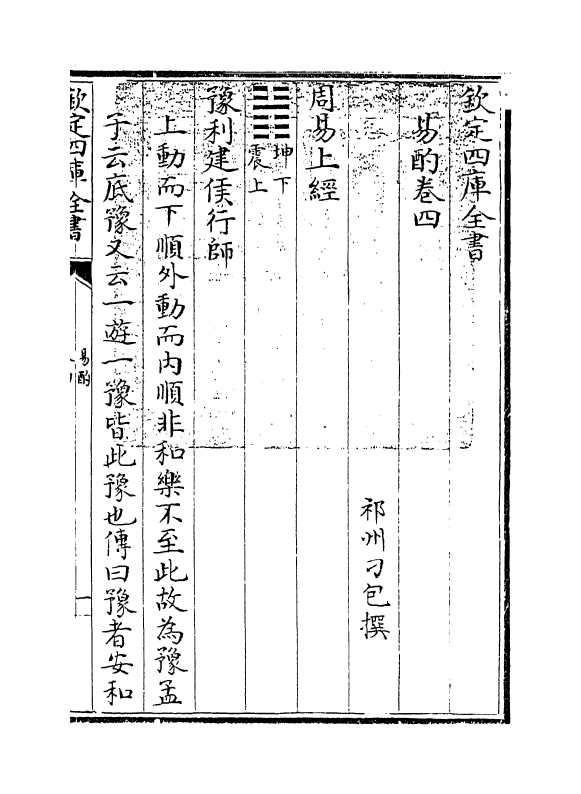 欽定四庫全書
易酌卷四
祁州刁包撰
周易上經
坤下
震上
豫利建侯行師
上動而下順外動而内順非和樂不至此故為豫孟
子云底豫又云一遊一豫皆此豫也傳曰豫者安和
欽定四庫全書
易酌
一